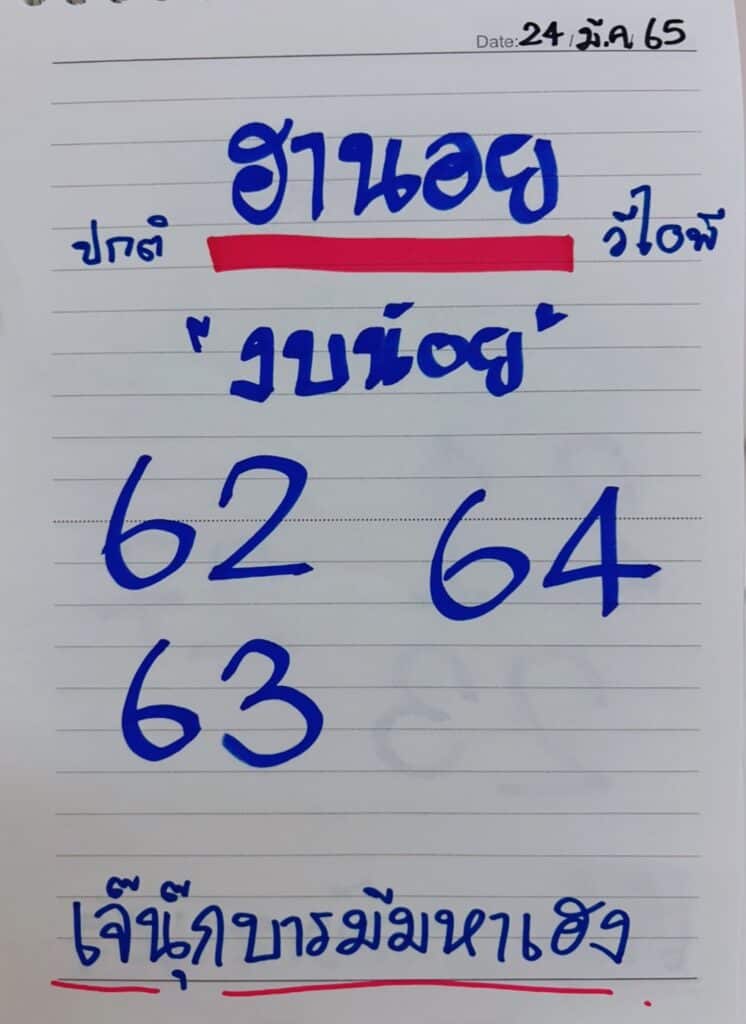 Date: 24 / มี.ค 65
ฮานอย
ปกติ วีไอพี
"งบน้อย"
62 64
63
เจ๊นุ๊กบารมีมหาเฮง